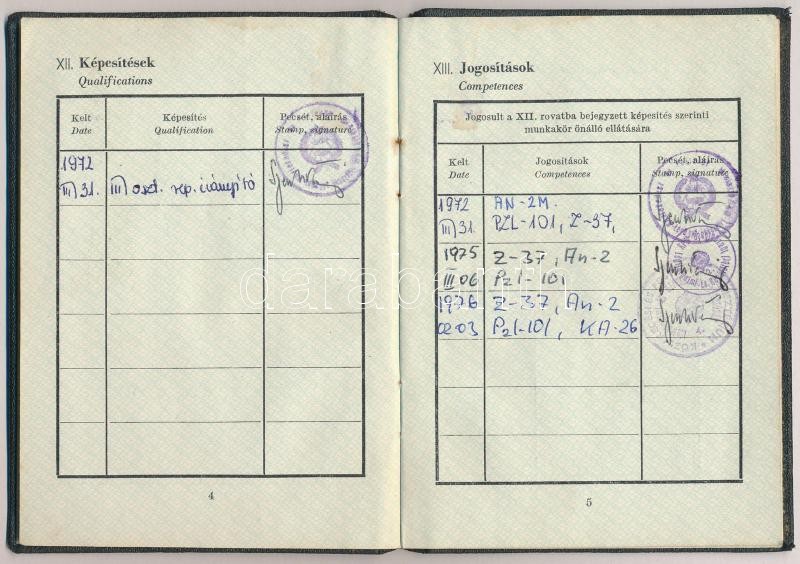 XII. Képesítések
Qualifications
Kelt
Date
Képesítés
Qualification
Pecsét, aláírás
Stamp, signature
1972
III 31.
III oszt. rep. irányító
4
XIII. Jogosítások
Competences
Jogosult a XII. rovatba bejegyzett képesítés szerinti
munkakör önálló ellátására
Kelt
Date
Jogosítások
Competences
Pecsét, aláírás
Stamp, signature
1972
III 31.
AN-2M.
PZL-101, Z-37,
1975
III 06
Z-37, An-2
Pzl-101
1976
02-03
Z-37, An-2
Pzl-101, KA-26
5
darabanth